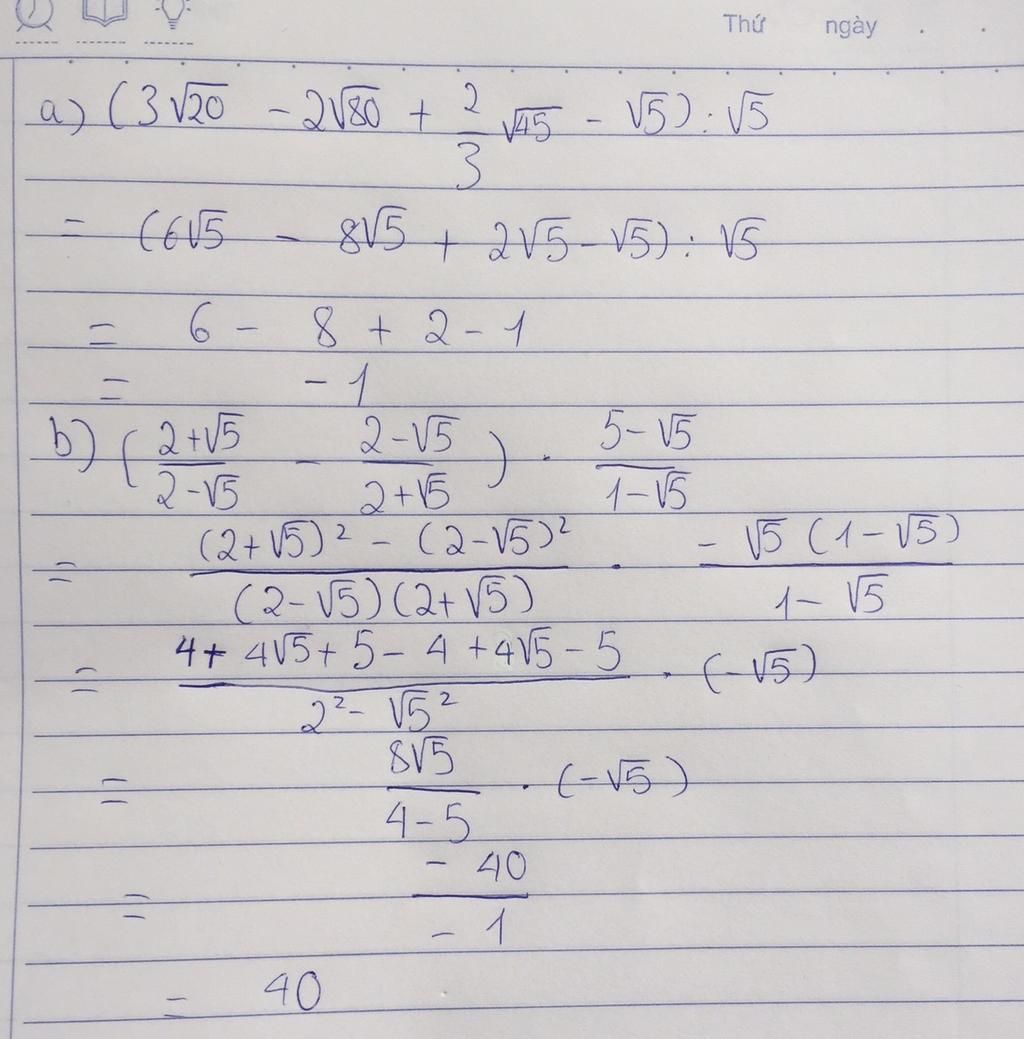 Thứ ngày . .
a) (3√20 - 2√80 + 2/3 √45 - √5) : √5
= (6√5 - 8√5 + 2√5 - √5) : √5
= 6 - 8 + 2 - 1
= - 1
b) ( (2+√5)/(2-√5) - (2-√5)/(2+√5) ) . (5-√5)/(1-√5)
= ((2+√5)² - (2-√5)²)/((2-√5)(2+√5)) . (-√5(1-√5))/(1-√5)
= (4+4√5+5-4+4√5-5)/(2²-√5²) . (-√5)
= (8√5)/(4-5) . (-√5)
= (-40)/(-1)
= 40